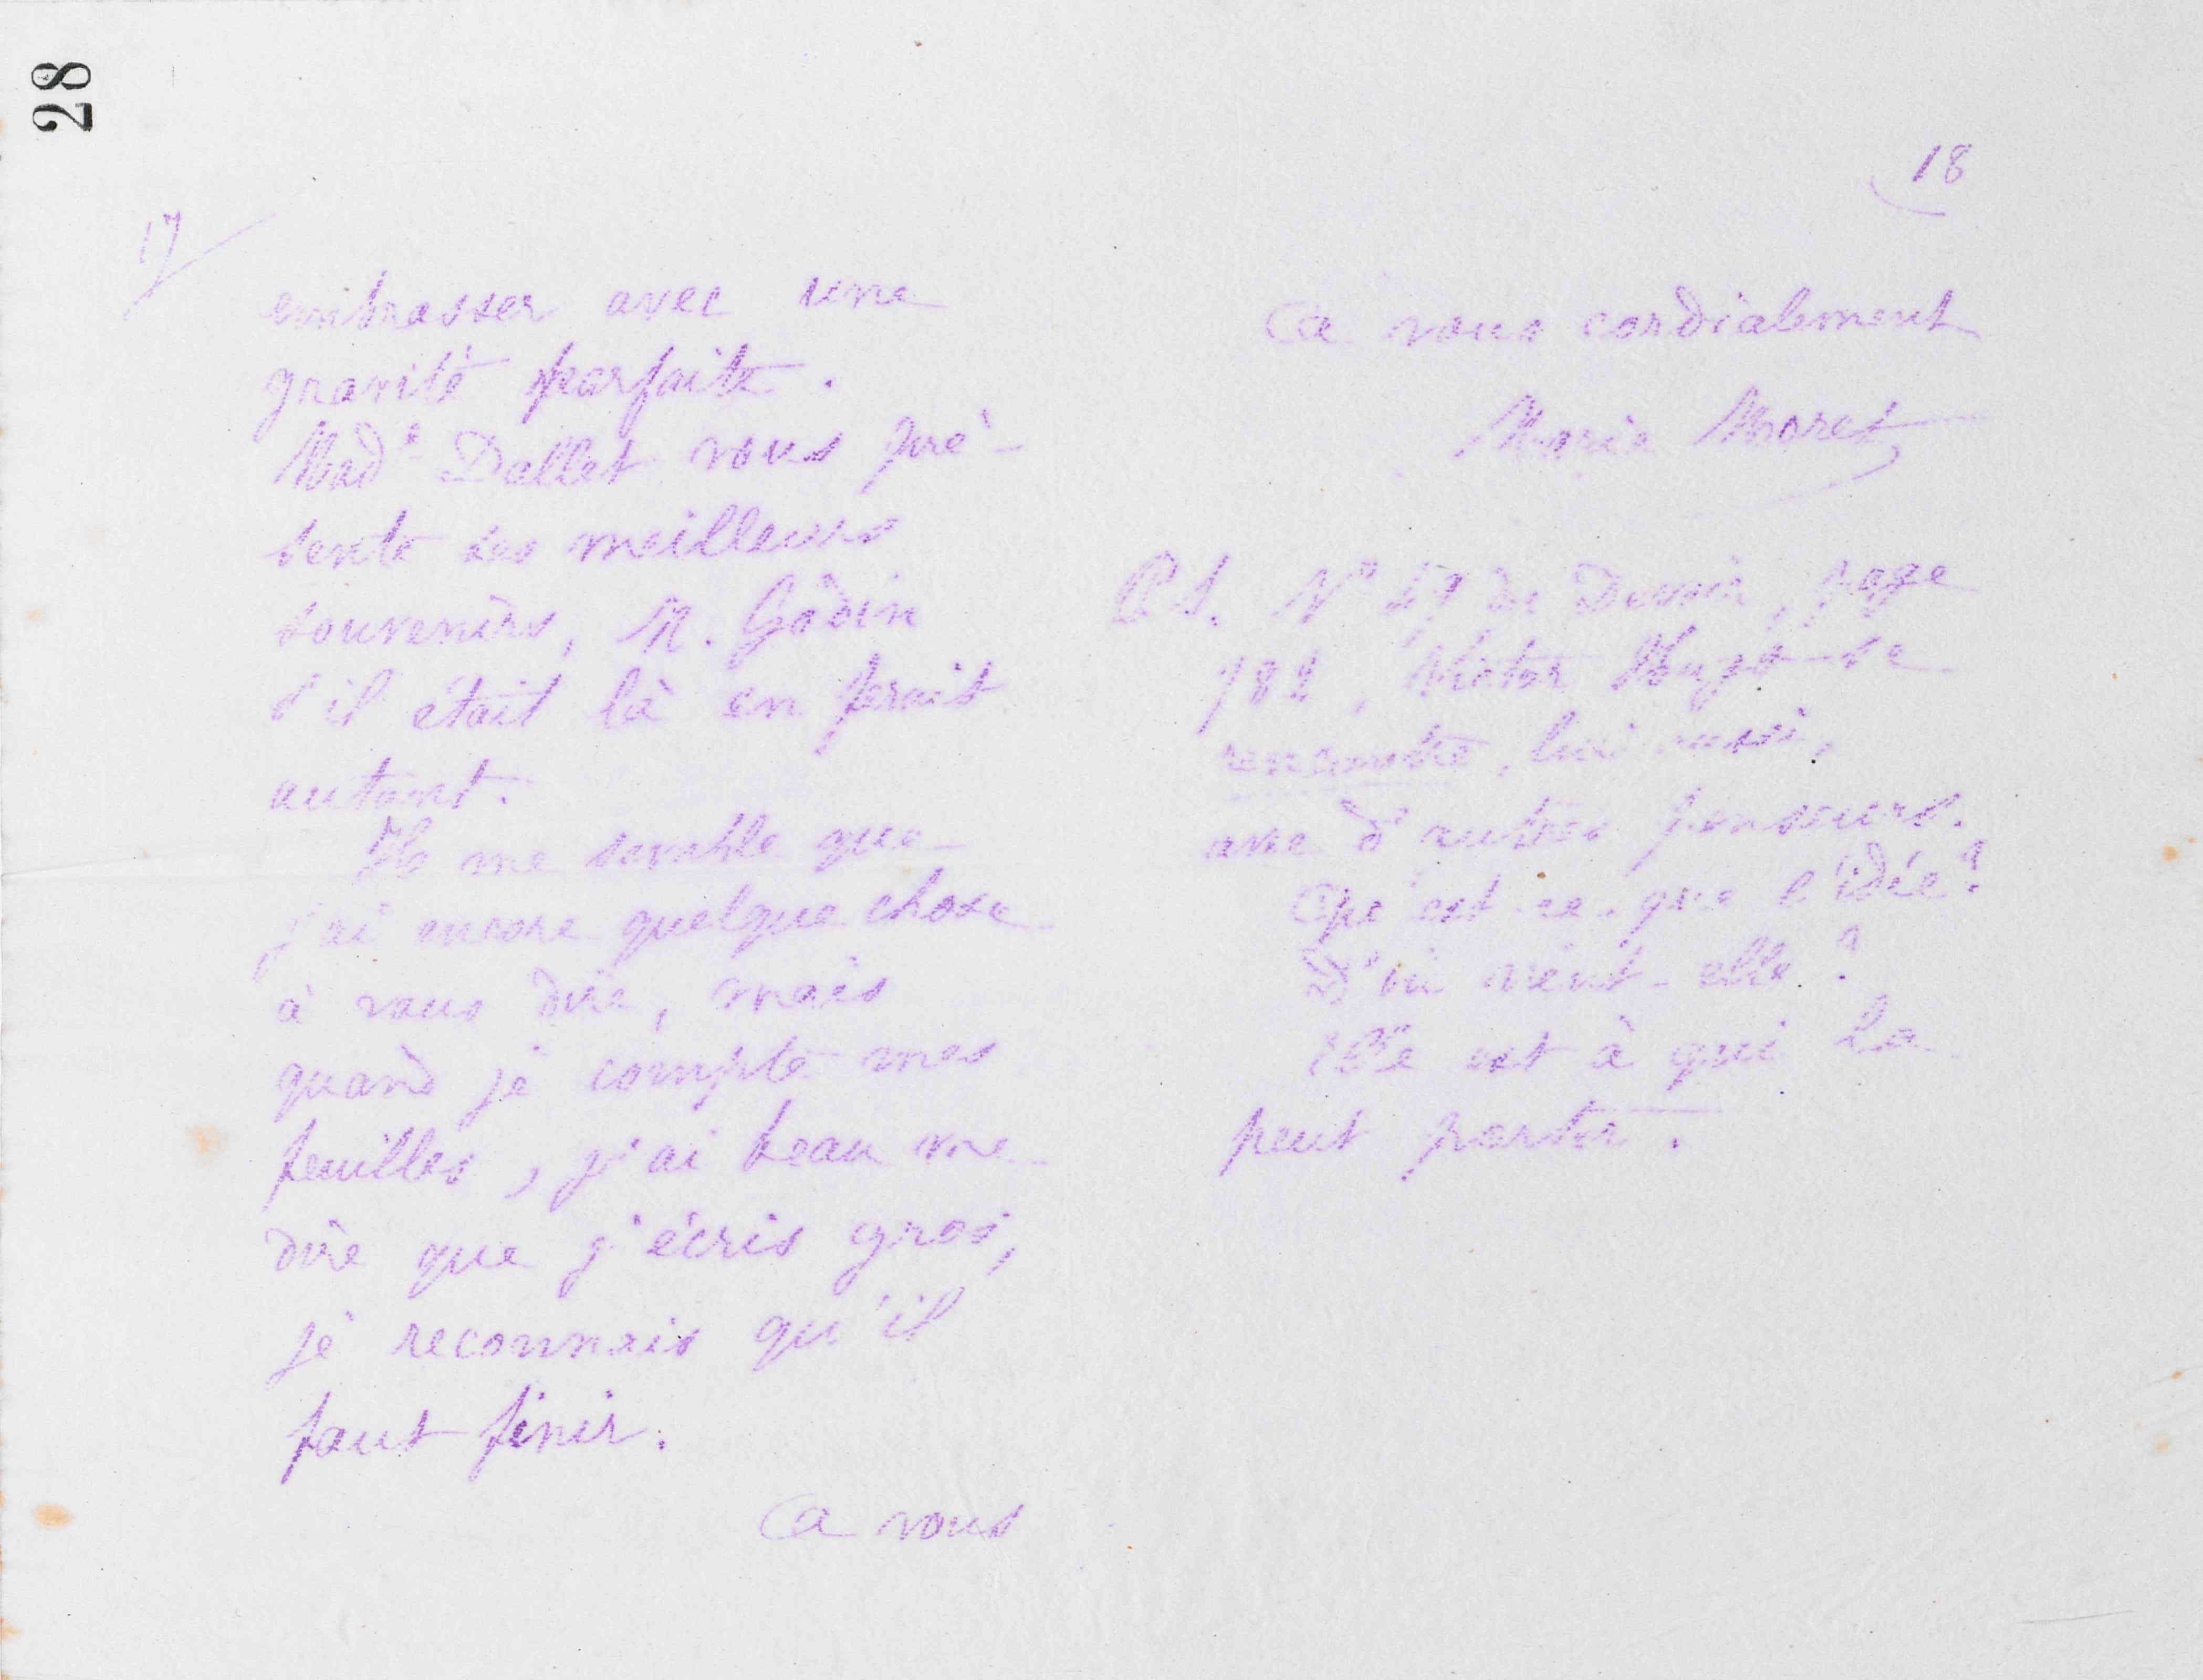 28
17
embrasser avec une
gravité parfaite.
Made Dallet vous pré-
sente ses meilleurs
souvenirs, M. Godin
s'il était là en ferait
autant.
Il me semble que
j'ai encore quelque chose
à vous dire, mais
quand je compte mes
feuilles, j'ai beau me
dire que j'écris gros,
je reconnais qu'il
faut finir.
A vous
18
A vous cordialement
Marie Moret
P.S. N° du Devoir, page
Victor Hugo se
rencontre, lui aussi,
avec d'autres penseurs.
Qu'est-ce que l'idée?
D'où vient-elle?
Elle est à qui la
peut porter.